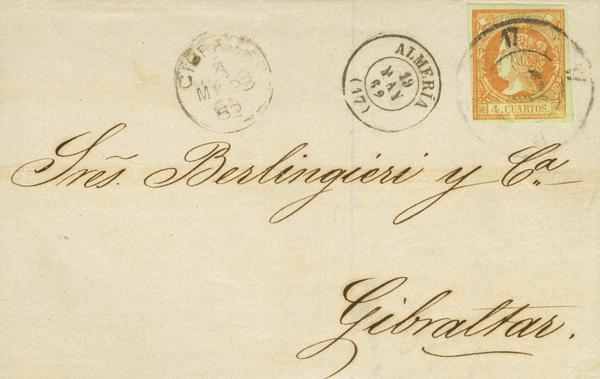 GIBRAL
A
MY
ALMERÍA
19
MAY
69
(17)
17
4 CUARTOS.
Sres. Berlingieri y Ca.
Gibraltar.